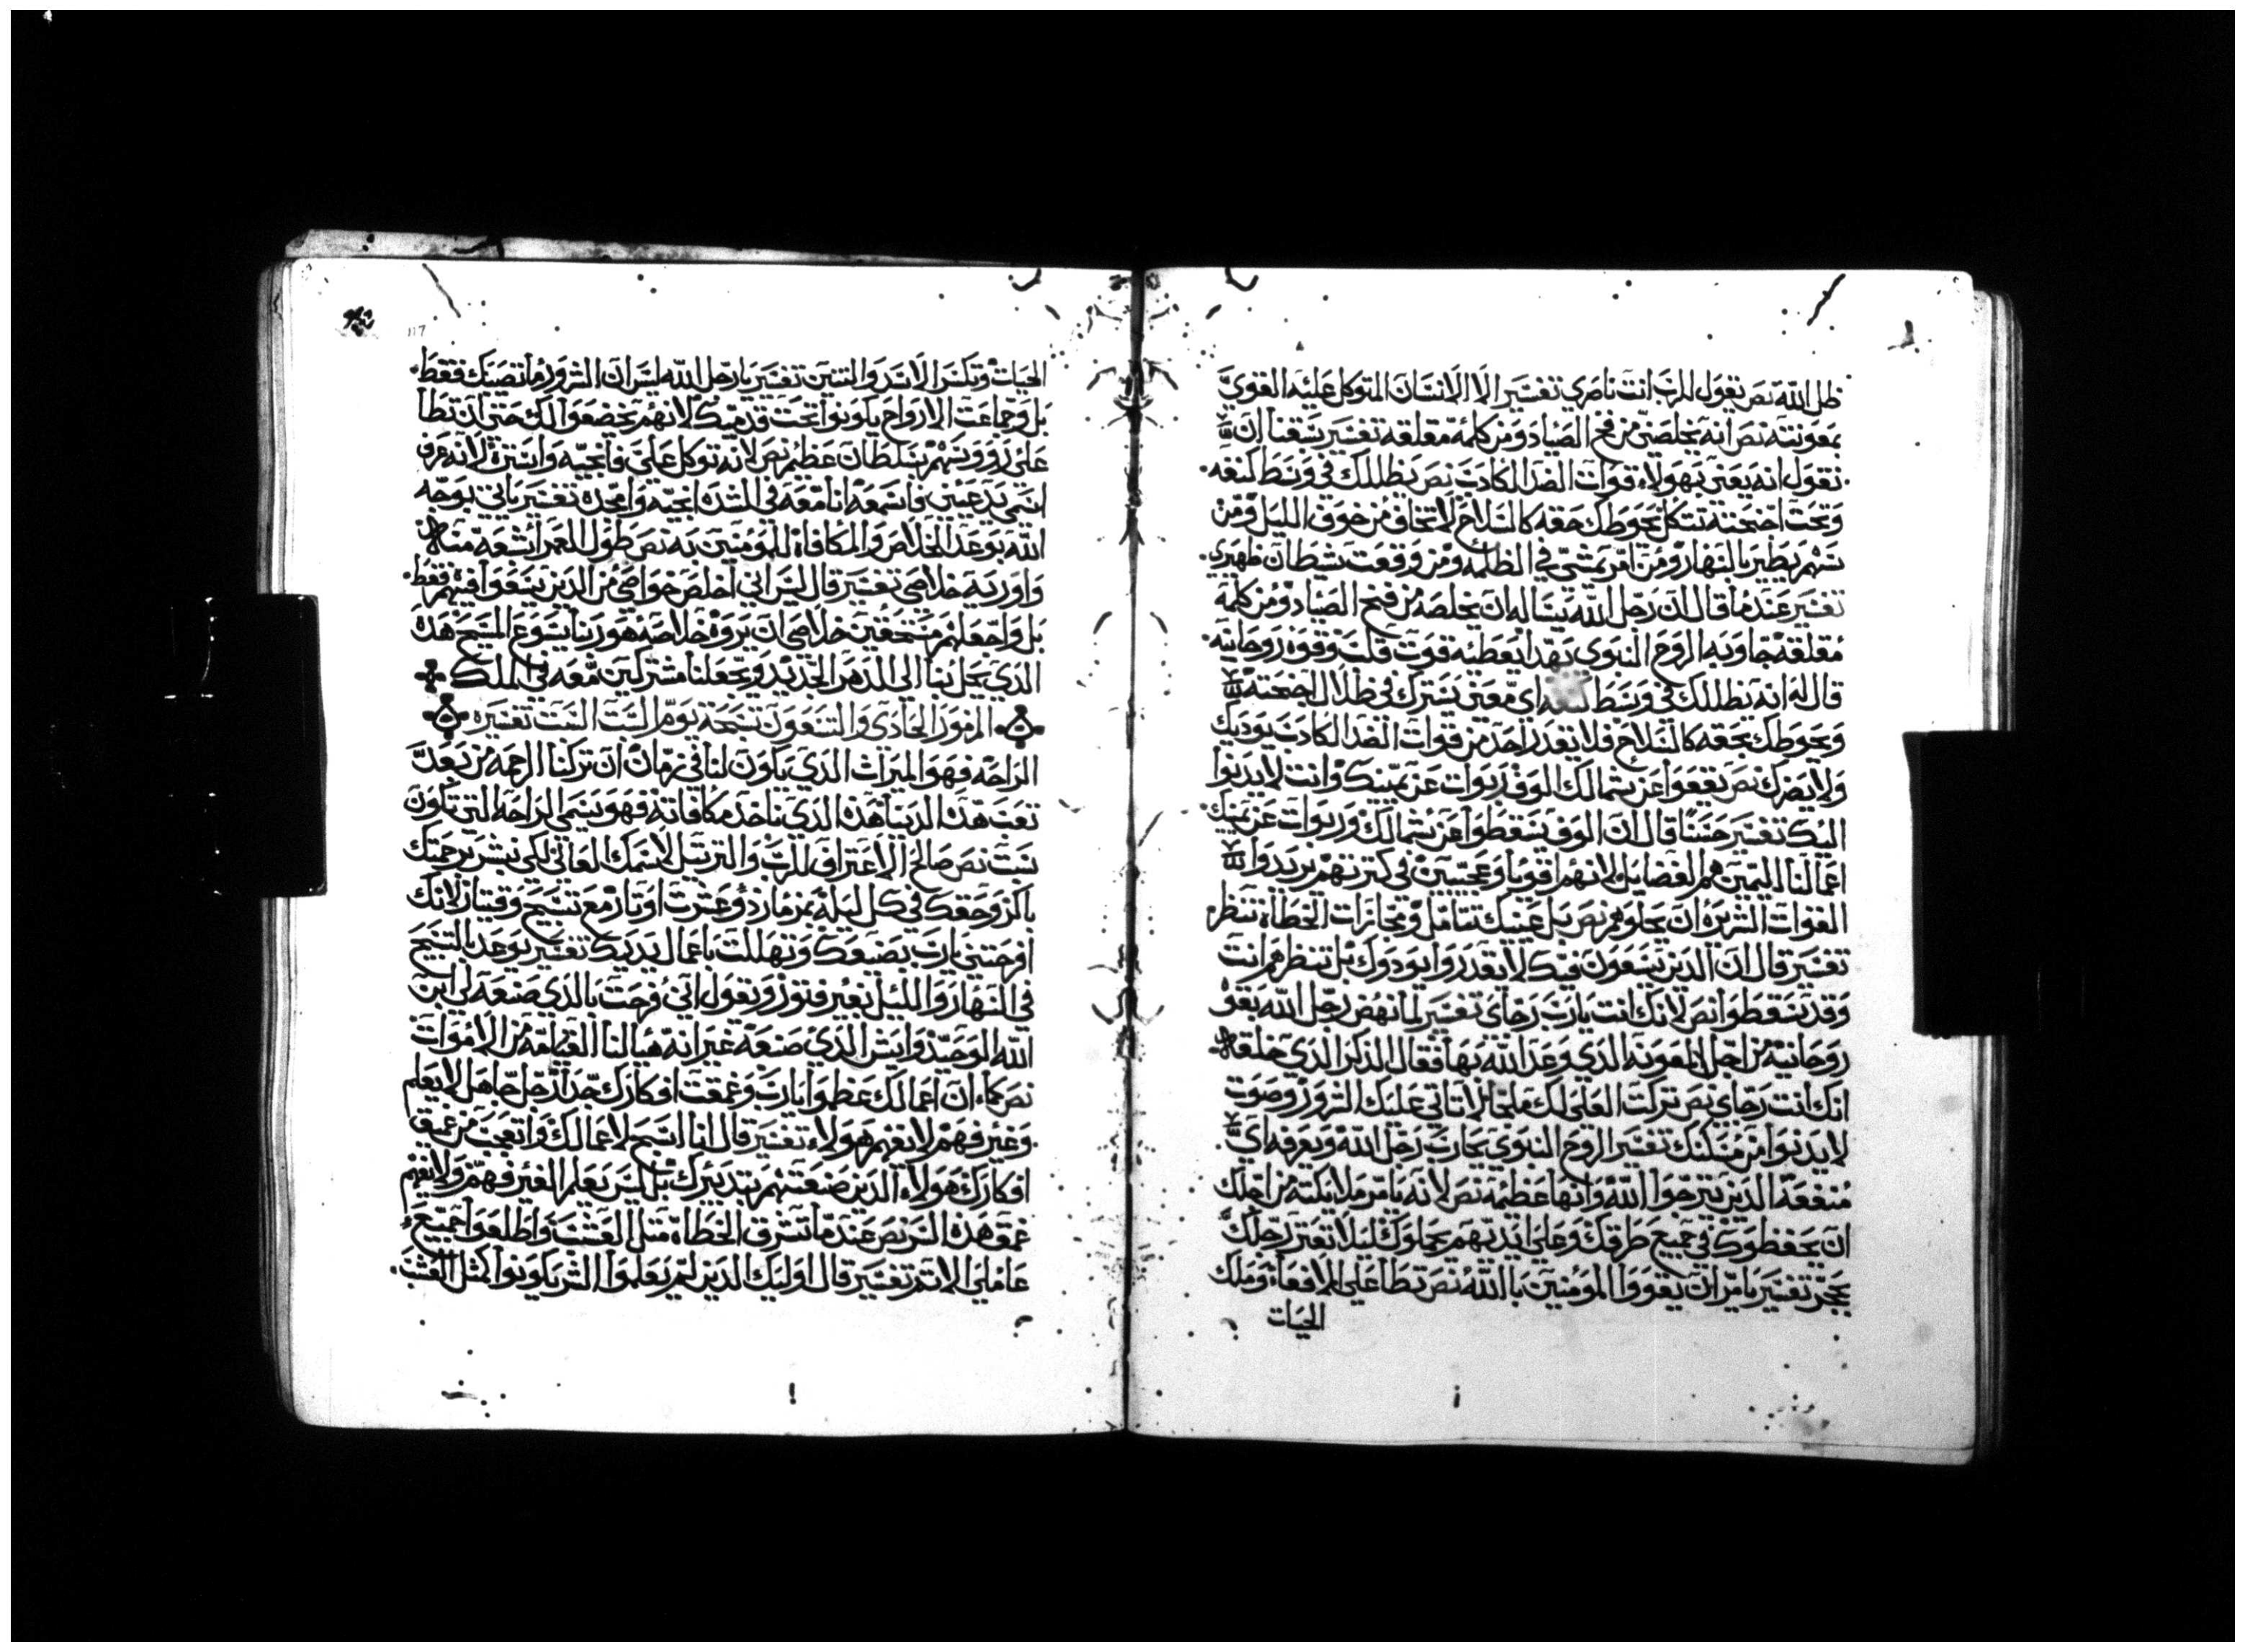 ظل الله نص يقول للرب انت ناصري تفسير الا الانسان المتوكل عليه القوي
بمعونته نص انه يخلصني من فخ الصياد ومن كلمه مقلقه تفسير يسقنا ان
نقول انه يعني بهولاء قوات الضد الكادب نص يظللك في وسط كنفه
وتحت اجنحته تتكل يحوطك حقه كالسلاح لا تخاف من خوف الليل ومن
سهم يطير بالنهار ومن امر يمشي في الظلمه ومن وقعت شيطان ظهيري
تفسير عندما قال ان رجل الله يساله ان يخلصه من فخ الصياد ومن كلمة
مقلقه جاوبه الروح النبوي بهدا يعطيه قوت قلب وقوه روحانيه
قال له انه يظللك في وسط كنفه اي معني يسترك في ظلال اجنحته
ويحوطك بحقه كالسلاح فلا يقدر احد من قوات الضد الكادب يوديك
ولا يضرك نص يقعوا عن شمالك الوف وربوات عن يمينك وانت لا يدنوا
اليك تفسير حسنا قال ان الوف يسقطوا عن شمالك وربوات عن يمينك
اعمالنا اليمين هم الفضايل ولانهم اقويا وعجيبين في كترتهم يريدوا
القوات الشريره ان يحلوهم نص بل عينيك تتامل ومجازات الخطاة تنظر
تفسير قال ان الدين يسعون فيك لا يقدروا يودوك بل تنظرهم انت
وقد يسقطوا نص لانك انت يارب رجاي تفسير لما نهض رجل الله بقو
روحانيه من اجل المعونه الدي وعد الله بها فقال الدكر الدي خلقه
انك انت رجاي نص تركت العلي لك ملجا لا تاتي عليك الشرور وصوت
لا يدنوا من مسكنك تفسير الروح النبوي يجاوب رجل الله ويعرفه اي
منفعة الدين يترجوا الله وانها عظيمه نص لانه يامر ملايكته من اجلك
ان يحفظوك في جميع طرقك وعلي ايديهم يحملوك ليلا تعتر رجلك
بحجر تفسير يامر ان يقووا المومنين با الله نص تطا علي الافعا وملك
الحيات
117
الحيات وتكسر الاسد والتنين تفسير يا رجل الله ليس ان الشرور ما تصيبك فقط
بل وجماعت الارواح يكونوا تحت قدميك لانهم يخضعوا لك حتي ان تطا
علي رووسهم بسلطان عظيم نص لانه توكل علي فانجيه واستره لانه عرف
اسمي يدعيني فاسمعه انا معه في الشده انجيه وامجده تفسير ياتي بوجه
الله بوعد الخلاص والمكافاة للمومنين به نص طول العمر اشبعه منه
واوريه خلاصي تفسير قال ليس اني اخلص خواصي من الدين يبغوا فيهم فقط
بل واجعلهم مستحقين خلاصي ان يروه خلاصه هو ربنا يسوع المسيح هدا
الدي يحل بنا الي الدهر الجديد ويجعلنا مشتركين معه في الملك
المزمور الحادي والتسعون تسبحة يوم السبت السبت تفسيره
الراحه فهو الميراث الدي يكون لنا في زمان ان تركنا الرحمه من بعد
تعب هده الدنيا هدا الدي ناخد مكافاته فهو يسمي الراحه التي تكون
سبت نص صالح الاعتراف للرب والترتيل لاسمك العالي لكي نبشر برحمتك
باكر وحقك في كل ليله بمزمار دو عشرت اوتار مع تسبيح وقيتار لانك
افرحتني يارب بصنعك وتهللت باعمال يديك تفسير يوعد بالتسبيح
في النهار والليل بغير فتور ويقول اني فرحت بالدي صنعه لي ابن
الله الوحيد وايش الدي صنعه غير انه هيا لنا القيامه من الاموات
نص كما ان اعمالك عظموا يارب وعمقت افكارك جدا رجل جاهل لا يعلم
وغير فهم لا يفهم هولاء تفسير قال انا اسبح لاعمالك واتعجب من عميق
افكارك هولاء الدين صنعتهم بتدبيرك بل ليس يعلم الغير فهم ولا يفهم
عمق هدا السر نص عند ما تشرق الخطاة متل العشب واطلعوا جميع
عاملي الاتم تفسير قال اوليك الدين لم يعلموا الشر يكونوا كمتل العشب